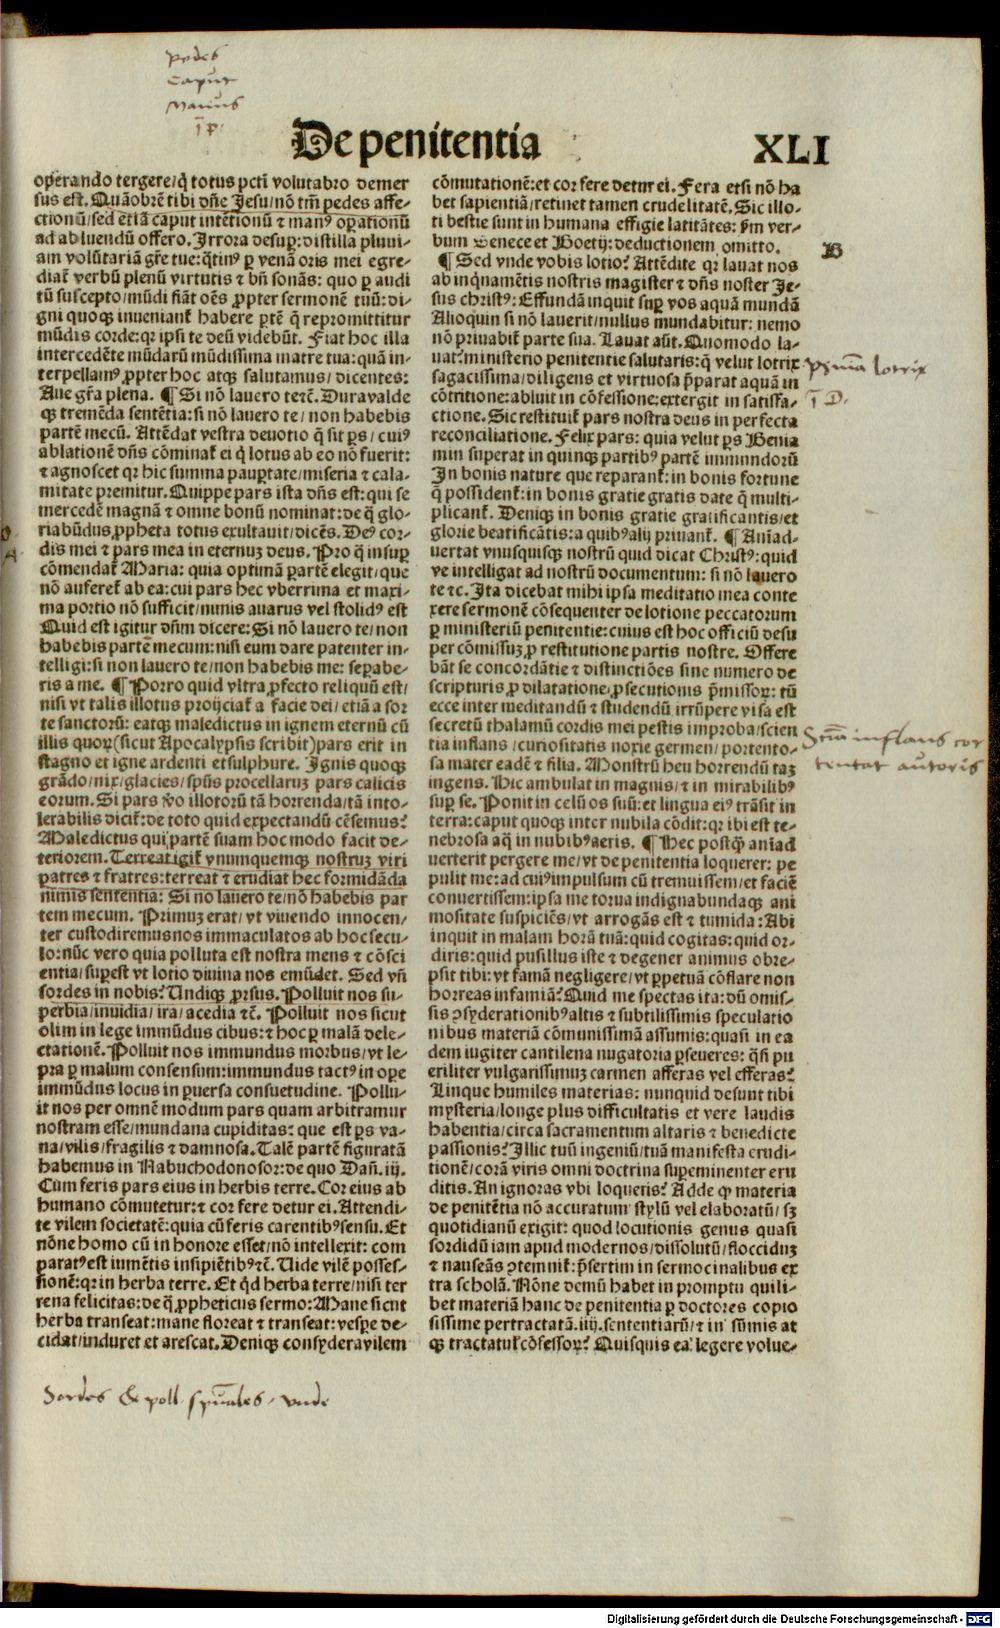 Pedes
Caput
Manus
De penitentia
XLI
operando tergere/q̄ totus pctī volutabro demer
sus est. Quāobrē tibi dn̄e Jesu/nō tm̄ pedes affe-
ctionū/sed etiā caput intētionū ⁊ manꝰ oꝑationū
ad abluendū offero. Irrora desuꝑ: distilla pluui-
am volūtariā gr̄e tue: q̄tinꝰ ꝑ venā oris mei egre-
diať verbū plenū virtutis ⁊ bn̄ sonās: quo ꝑ audi
tū suscepto/mūdi fiāt oēs ꝓpter sermonē tuū: di-
gni quoqꝫ inueniant̉ habere ꝑtē q̄ repromittitur
mūdis corde: qꝛ ipsi te deū videbūt. Fiat hoc illa
intercedēte mūdarū mūdissima matre tua: quā in-
terpellamꝰ ꝓpter hoc atqꝫ salutamus/dicentes:
Aue gr̄a plena. ¶ Si nō lauero te⁊c̄. Dura valde
qꝫ tremēda sentētia: si nō lauero te/non habebis
partē mecū. Attēdat vestra deuotio q̄ sit ꝑs/cuiꝰ
ablationē dn̄s cōminat̉ ei q̄ lotus ab eo nō fuerit:
⁊ agnoscet qꝛ hic summa pauꝑtate/miseria ⁊ cala-
mitate premitur. Quippe pars ista dn̄s est: qui se
mercedē magnā ⁊ omne bonū nominat: de q̄ glo-
riabūdus ꝓpheta totus exultauit/dicēs. Deꝰ cor-
dis mei ⁊ pars mea in eternuꝫ deus. Pro q̄ insuꝑ
cōmendat̉ Maria: quia optimā ꝑartē elegit/que
nō auferet̉ ab ea: cui pars hec vberrima et maxi-
ma portio nō sufficit/nimis auarus vel stolidꝰ est
Quid est igitur dn̄m dicere: Si nō lauero te/non
habebis partē mecum: nisi eum dare patenter in-
telligi: si non lauero te/non habebis me: seꝑabe-
ris a me. ¶ Porro quid vltra ꝓfecto reliquū est/
nisi vt talis illotus proijciat̉ a facie dei/etiā a sor
te sanctorū: eatqꝫ maledictus in ignem eternū cū
illis quoꝝ (sicut Apocalypsis scribit) pars erit in
stagno et igne ardenti et sulphure. Ignis quoqꝫ
grādo/nix/glacies/spūs procellaruꝫ pars calicis
eorum. Si pars v̄o illotorū tā horrenda/tā into-
lerabilis dicit̉: de toto quid expectandū cēsemus?
Maledictus qui partē suam hoc modo facit de-
teriorem. Terreat igit̉ vnumquemqꝫ nostruꝫ viri
patres ⁊ fratres: terreat ⁊ erudiat hec formidāda
nimis sententia: Si no lauero te/nō habebis par
tem mecum. Primuꝫ erat/vt viuendo innocen-
ter custodiremus nos immaculatos ab hoc secu-
lo: nūc vero quia polluta est nostra mens ⁊ cōsci
entia/suꝑest vt lotio diuina nos emūdet. Sed vn̄
sordes in nobis? Undiqꝫ ꝓrsus. Polluit nos su-
perbia/inuidia/ira/acedia ⁊c̄. Polluit nos sicut
olim in lege immūdus cibus: ⁊ hoc ꝑ malā dele-
ctationē. Polluit nos immundus morbus/vt le-
pra ꝑ malum consensum: immundus tactꝰ in oꝑe
immūdus locus in ꝑuersa consuetudine. Pollu-
it nos per omnē modum pars quam arbitramur
nostram esse/mundana cupiditas: que est ꝑs va-
na/vilis/fragilis ⁊ damnosa. Talē partē figuratā
habemus in Nabuchodonosor: de quo Dañ. iij.
Cum feris pars eius in herbis terre. Cor eius ab
humano cōmutetur: ⁊ cor fere detur ei. Attendi-
te vilem societatē: quia cū feris carentibꝰ sensu. Et
nōne homo cū in honore esset/nō intellexit: com
paratꝰ est iumētis insipiētibꝰ ⁊c̄. Uide vilē posses-
sionē: qꝛ in herba terre. Et q̇d herba terre/nisi ter
rena felicitas: de q̄ ꝓpheticus sermo: Mane sicut
herba transeat: mane floreat ⁊ transeat: vesꝑe de-
cidat/induret et arescat. Deniqꝫ consydera vilem
cōmutationē: et cor fere detur ei. Fera etsi nō ha
bet sapientiā/retinet tamen crudelitatē. Sic illo-
ti bestie sunt in humana effigie latitātes: ꝑm ver-
bum Senece et Boetij: deductionem omitto.
B
¶ Sed vnde vobis lotio? Attēdite qꝛ lauat nos
ab inq̇namētis nostris magister ⁊ dn̄s noster Je-
sus christꝰ: Effundā inquit suꝑ vos aquā mundā
Alioquin si nō lauerit/nullus mundabitur: nemo
nō priuabit̉ parte sua. Lauat aūt. Quomodo la-
uat? ministerio penitentie salutaris: q̄ velut lotrix
sagacissima/diligens et virtuosa p̄parat aquā in
cōtritione: abluit in cōfessione: extergit in satisfa-
ctione. Sic restituit̉ pars nostra deus in perfecta
reconciliatione. Felix pars: quia velut ꝑs Benia
min superat in quinqꝫ partibꝰ partē immundorū
In bonis nature que reparant̉: in bonis fortune
q̄ possident̉: in bonis gratie gratis date q̄ multi-
plicant̉. Deniqꝫ in bonis gratie gratificantis/et
glorie beatificātis: a quibꝰ alij priuant̉. ¶ Aniad-
uertat vnusquisqꝫ nostrū quid dicat Christꝰ: quid
ve intelligat ad nostrū documentum: si nō lauero
te ⁊c. Ita dicebat mihi ipsa meditatio mea conte
xere sermonē cōsequenter de lotione peccatorum
ꝑ ministeriū penitentie: cuius est hoc officiū desu
per cōmissuꝫ ꝓ restitutione partis nostre. Offere
bāt se concordātie ⁊ distinctiōes sine numero de
scripturis ꝓ dilatatione/ꝓsecutionis p̄missoꝝ: tū
ecce inter meditandū ⁊ studendū irrūpere visa est
secretū thalamū cordis mei pestis improba/scien
tia inflans/curiositatis noxie germen/portento-
sa mater eadē ⁊ filia. Monstrū heu horrendū taꝫ
ingens. Hic ambulat in magnis/⁊ in mirabilibꝰ
suꝑ se. Ponit in celū os suū: et lingua eiꝰ trāsit in
terra: caput quoqꝫ inter nubila cōdit: qꝛ ibi est te-
nebrosa aq̄ in nubibꝰ aeris. ¶ Hec postq̄ aniad
uerterit pergere me/vt de penitentia loquerer: pe
pulit me: ad cuiꝰ impulsum cū tremuissem/et faciē
conuertissem: ipsa me torua indignabundaqꝫ ani
mositate suspiciēs/vt arrogās est ⁊ tumida: Abi
inquit in malam horā tuā: quid cogitas: quid or-
diris: quid pusillus iste ⁊ degener animus obre-
psit tibi: vt famā negligere/vt ꝑpetuā cōflare non
horreas infamiā? Quid me spectas ita: dū omis-
sis ꝯsyderationibꝰ altis ⁊ subtilissimis speculatio
nibus materiā cōmunissimā assumis: quasi in ea
dem iugiter cantilena nugatoria ꝑseueres: q̄si pu
eriliter vulgarissimuꝫ carmen afferas vel efferas?
Linque humiles materias: nunquid desunt tibi
mysteria/longe plus difficultatis et vere laudis
habentia/circa sacramentum altaris ⁊ benedicte
passionis? Illic tuū ingeniū/tuā manifesta erudi-
tionē/corā viris omni doctrina suꝑeminenter eru
ditis. An ignoras vbi loqueris? Adde qꝙ materia
de penitētia nō accuratum stylū vel elaboratū/sꝫ
quotidianū exigit: quod locutionis genus quasi
sordidū iam apud modernos/dissolutū/flocciduꝫ
⁊ nauseās ꝯtemnit̉: p̄sertim in sermocinalibus ex
tra scholā. Nōne demū habet in promptu quili-
bet materiā hanc de penitentia ꝑ doctores copio
sissime pertractatā. iiij. sententiarū/⁊ in sūmis at
qꝫ tractatut̉ cōfessoꝝ? Quisquis ea legere volue-
lotrix
Sciā inflans cor
tentat autoris
Sordes & poll. spūales, vnde
Digitalisierung gefördert durch die Deutsche Forschungsgemeinschaft - DFG